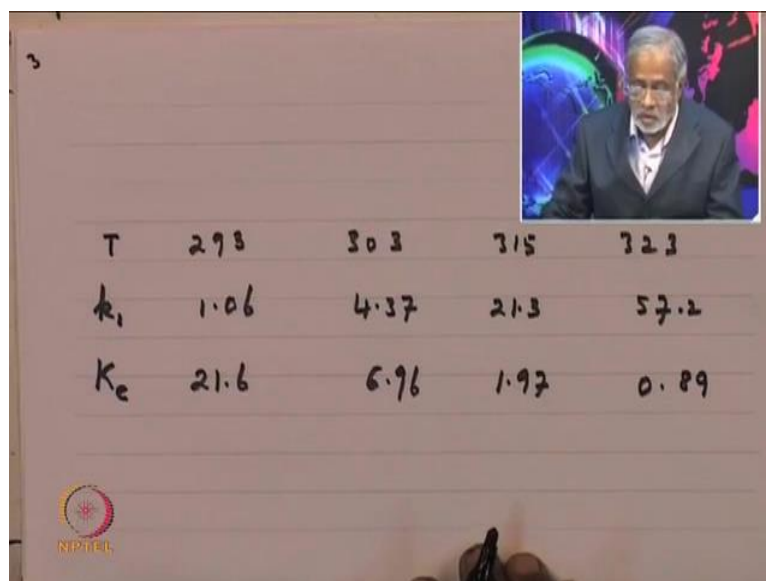 3
T 293 303 315 323
k₁ 1.06 4.37 21.3 57.2
Ke 21.6 6.96 1.97 0.89
NPTEL